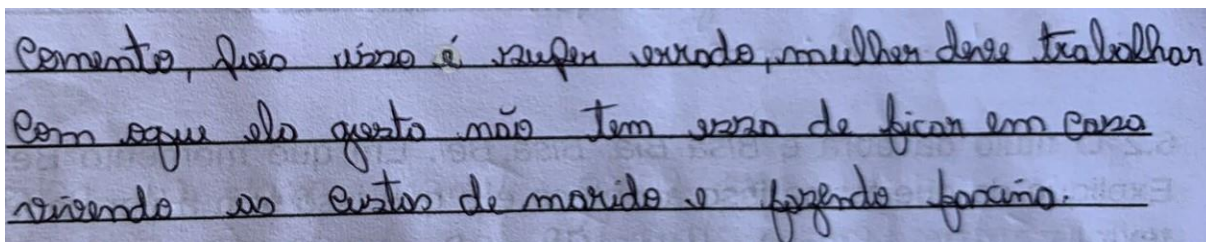 comento, pois isso é super errado, mulher deve trabalhar
com oque ela gosta não tem esso de ficar em casa
vivendo as custas de marido e fazendo faxina.